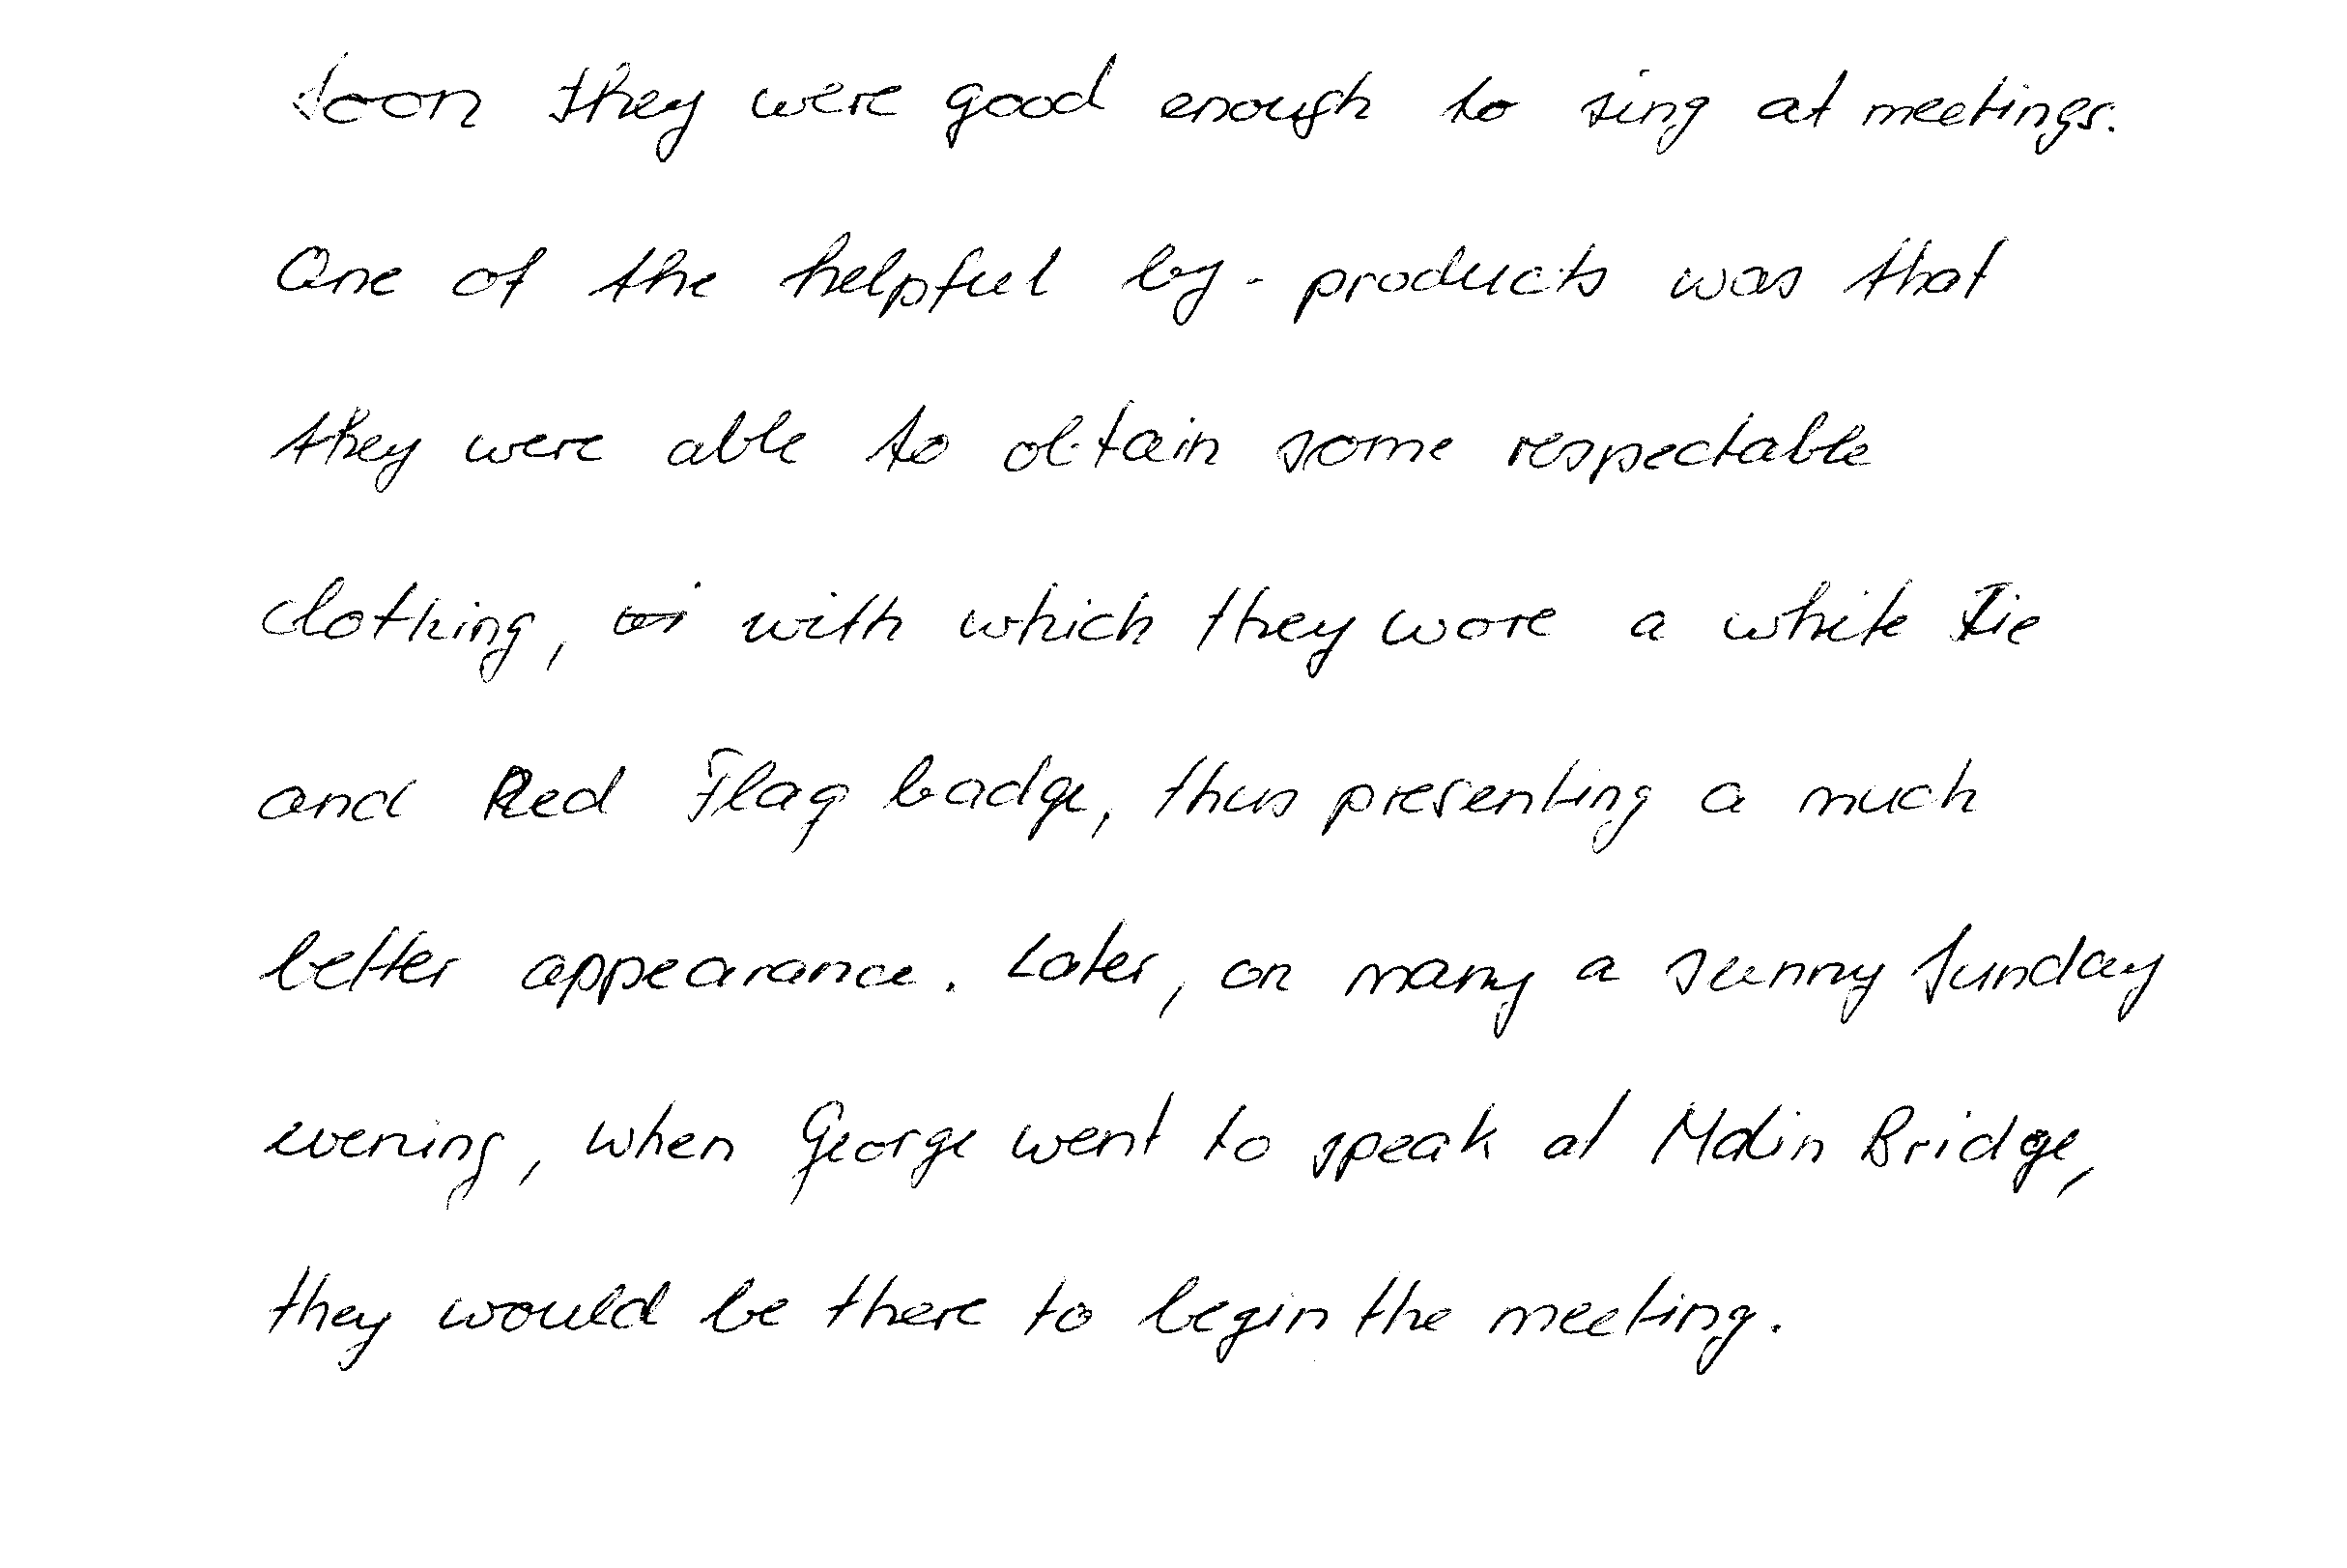 Soon they were good enough to sing at meetings.
One of the helpful by-products was that
they were able to obtain some respectable
clothing, with which they wore a white tie
and Red Flag badge, thus presenting a much
better appearance. Later, on many a sunny Sunday
evening, when George went to speak at Malin Bridge,
they would be there to begin the meeting.